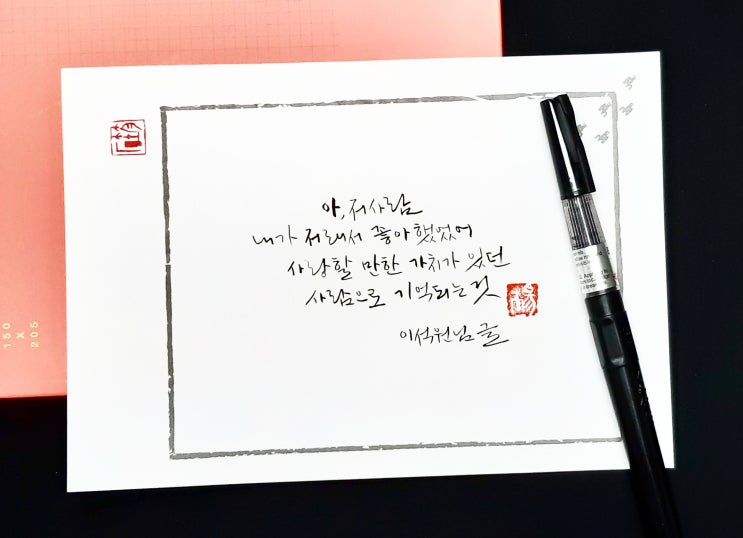 아, 저사람
내가 저래서 좋아했었어
사랑할 만한 가치가 있던
사람으로 기억되는 것
이석원님 글
150
X
205